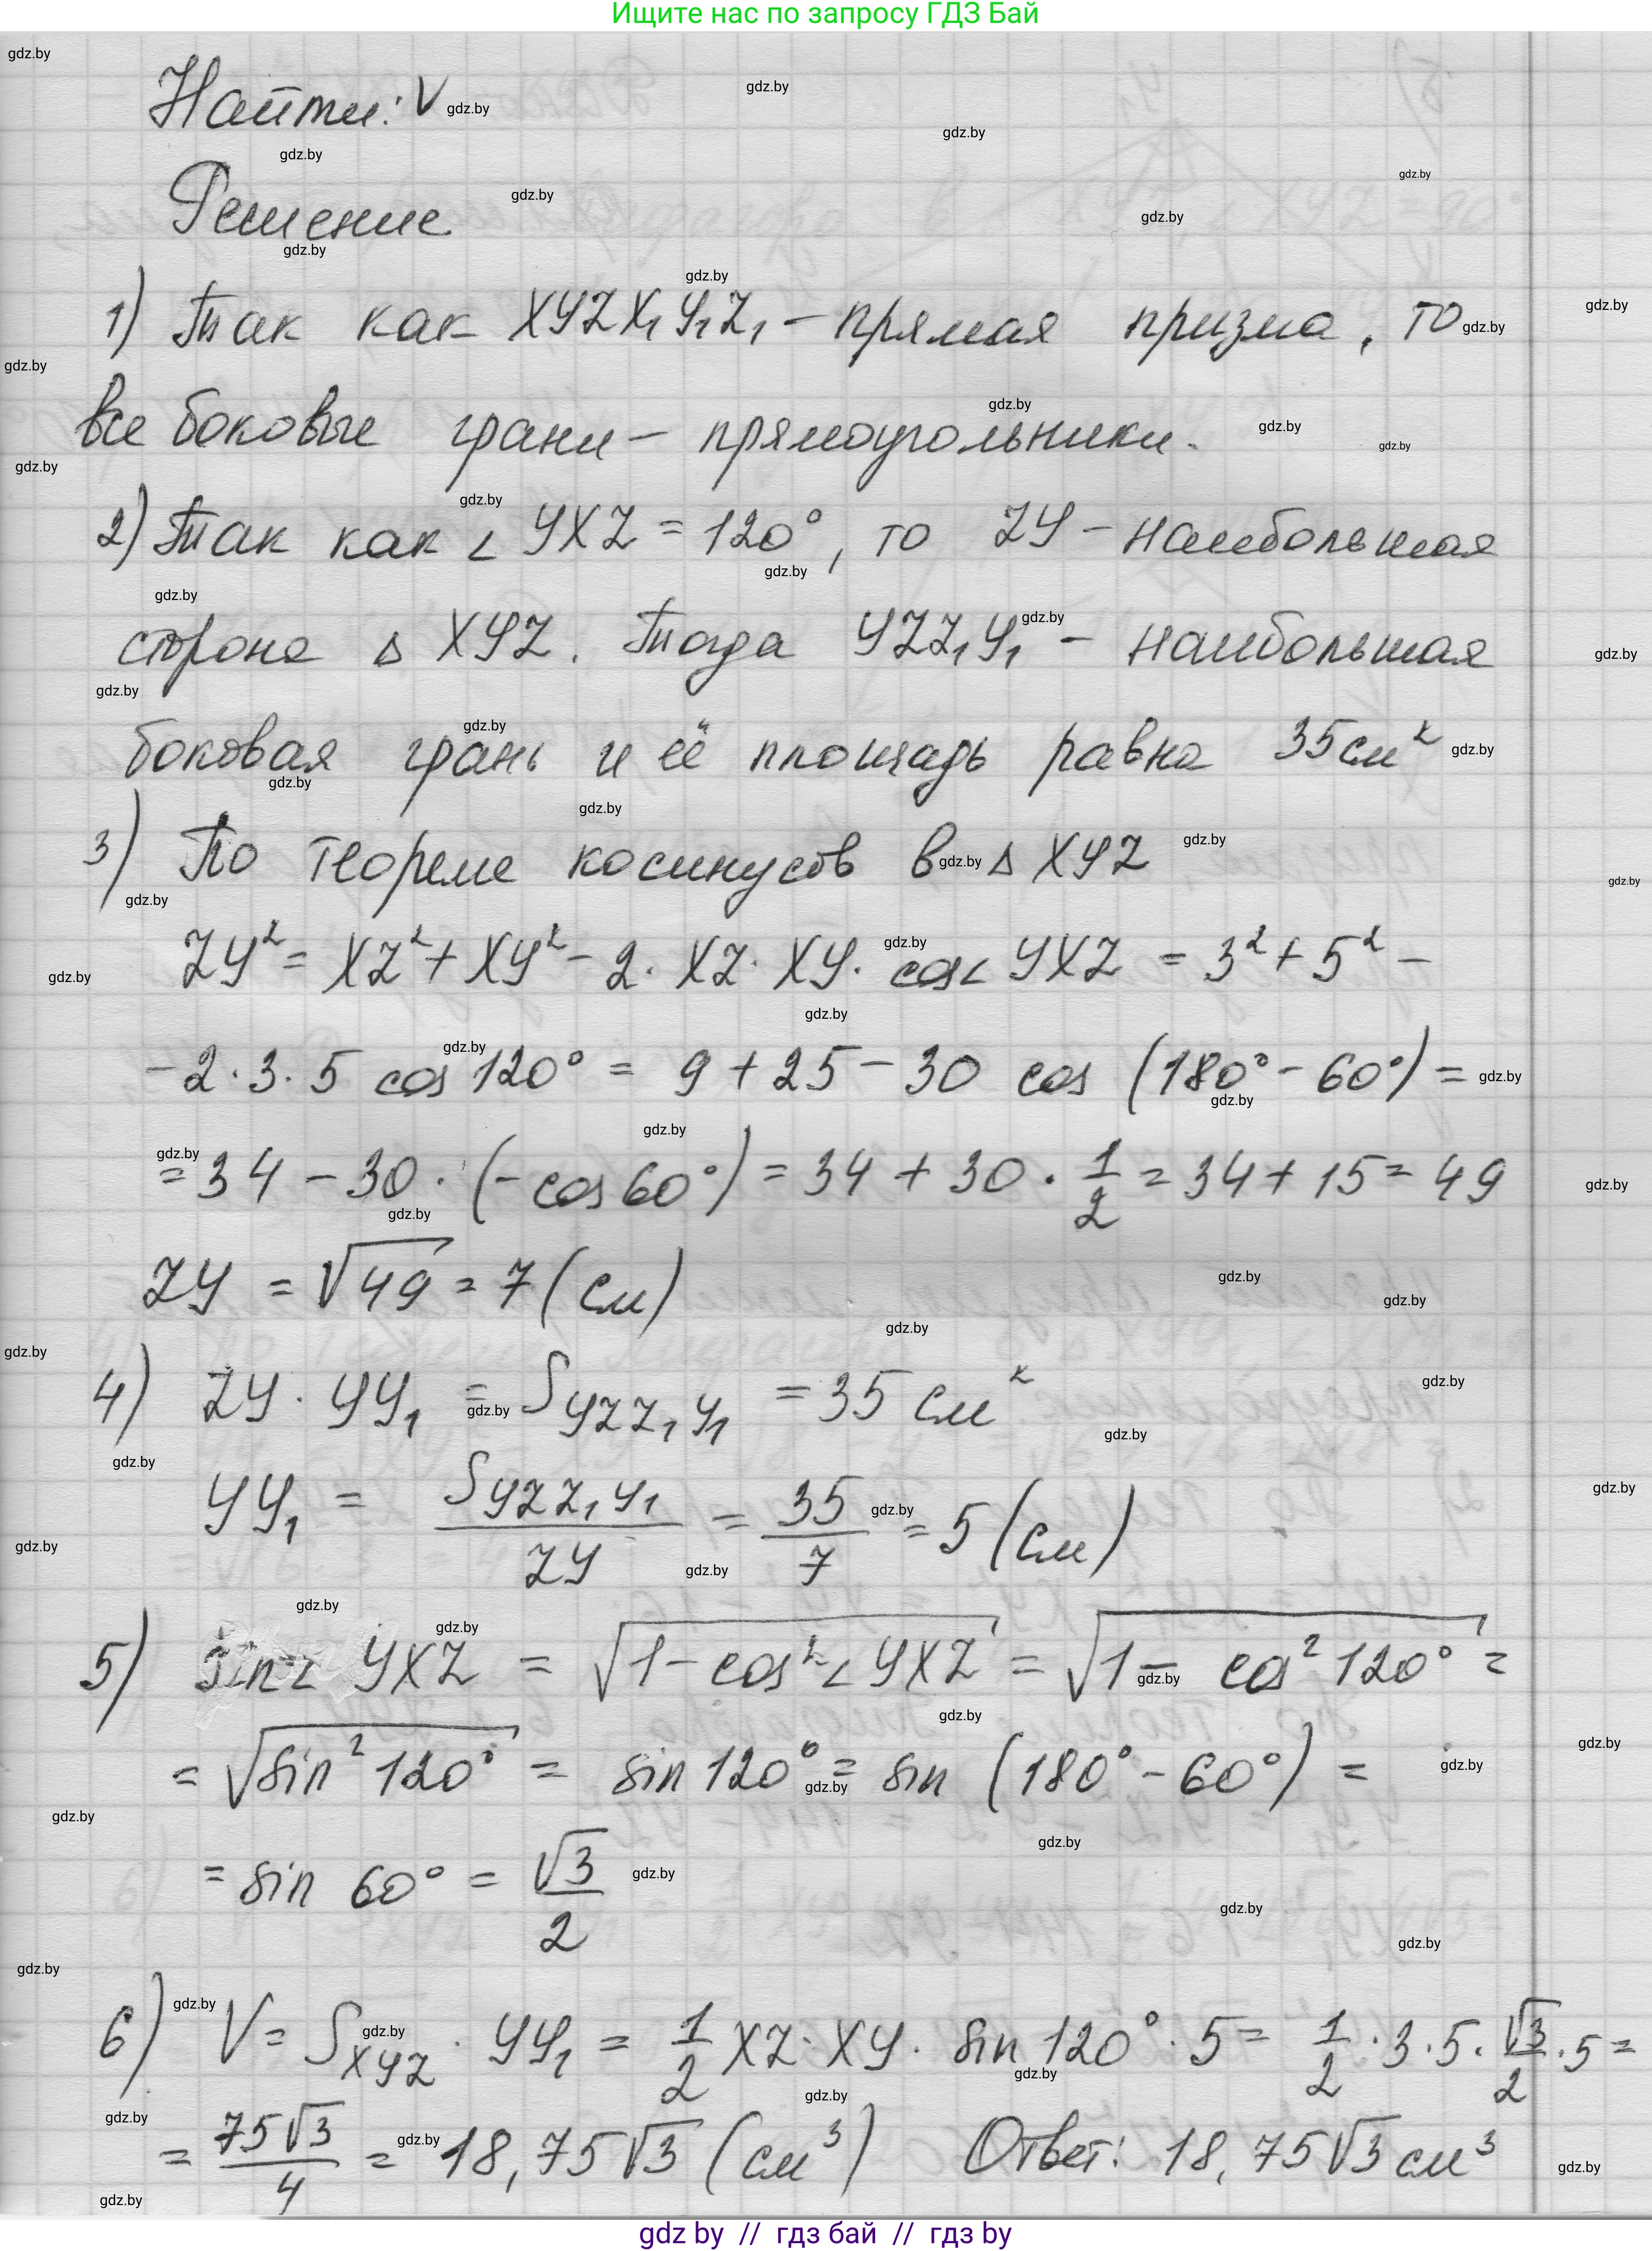 Ищите нас по запросу ГДЗ Бай
Найти: V
Решение
1) Так как XYZX₁Y₁Z₁ – прямая призма, то
все боковые грани – прямоугольники.
2) Так как ∠ YXZ = 120°, то ZY – наибольшая
сторона △ XYZ. Тогда YZZ₁Y₁ – наибольшая
боковая грань и её площадь равна 35 см²
3) По теореме косинусов в △ XYZ
ZY² = XZ² + XY² – 2 · XZ · XY · cos∠ YXZ = 3² + 5² –
– 2 · 3 · 5 cos 120° = 9 + 25 – 30 cos (180° – 60°) =
= 34 – 30 · (– cos 60°) = 34 + 30 · 1/2 = 34 + 15 = 49
ZY = √49 = 7 (см)
4) ZY · YY₁ = S YZZ₁Y₁ = 35 см²
YY₁ = S YZZ₁Y₁ / ZY = 35/7 = 5 (см)
5) sin∠ YXZ = √(1 – cos²∠ YXZ) = √(1 – cos² 120°) =
= √(sin² 120°) = sin 120° = sin (180° – 60°) =
= sin 60° = √3/2
6) V = S XYZ · YY₁ = 1/2 XZ · XY · sin 120° · 5 = 1/2 · 3 · 5 · √3/2 · 5 =
= 75√3/4 = 18,75√3 (см³) Ответ: 18,75√3 см³
gdz by // гдз бай // гдз by